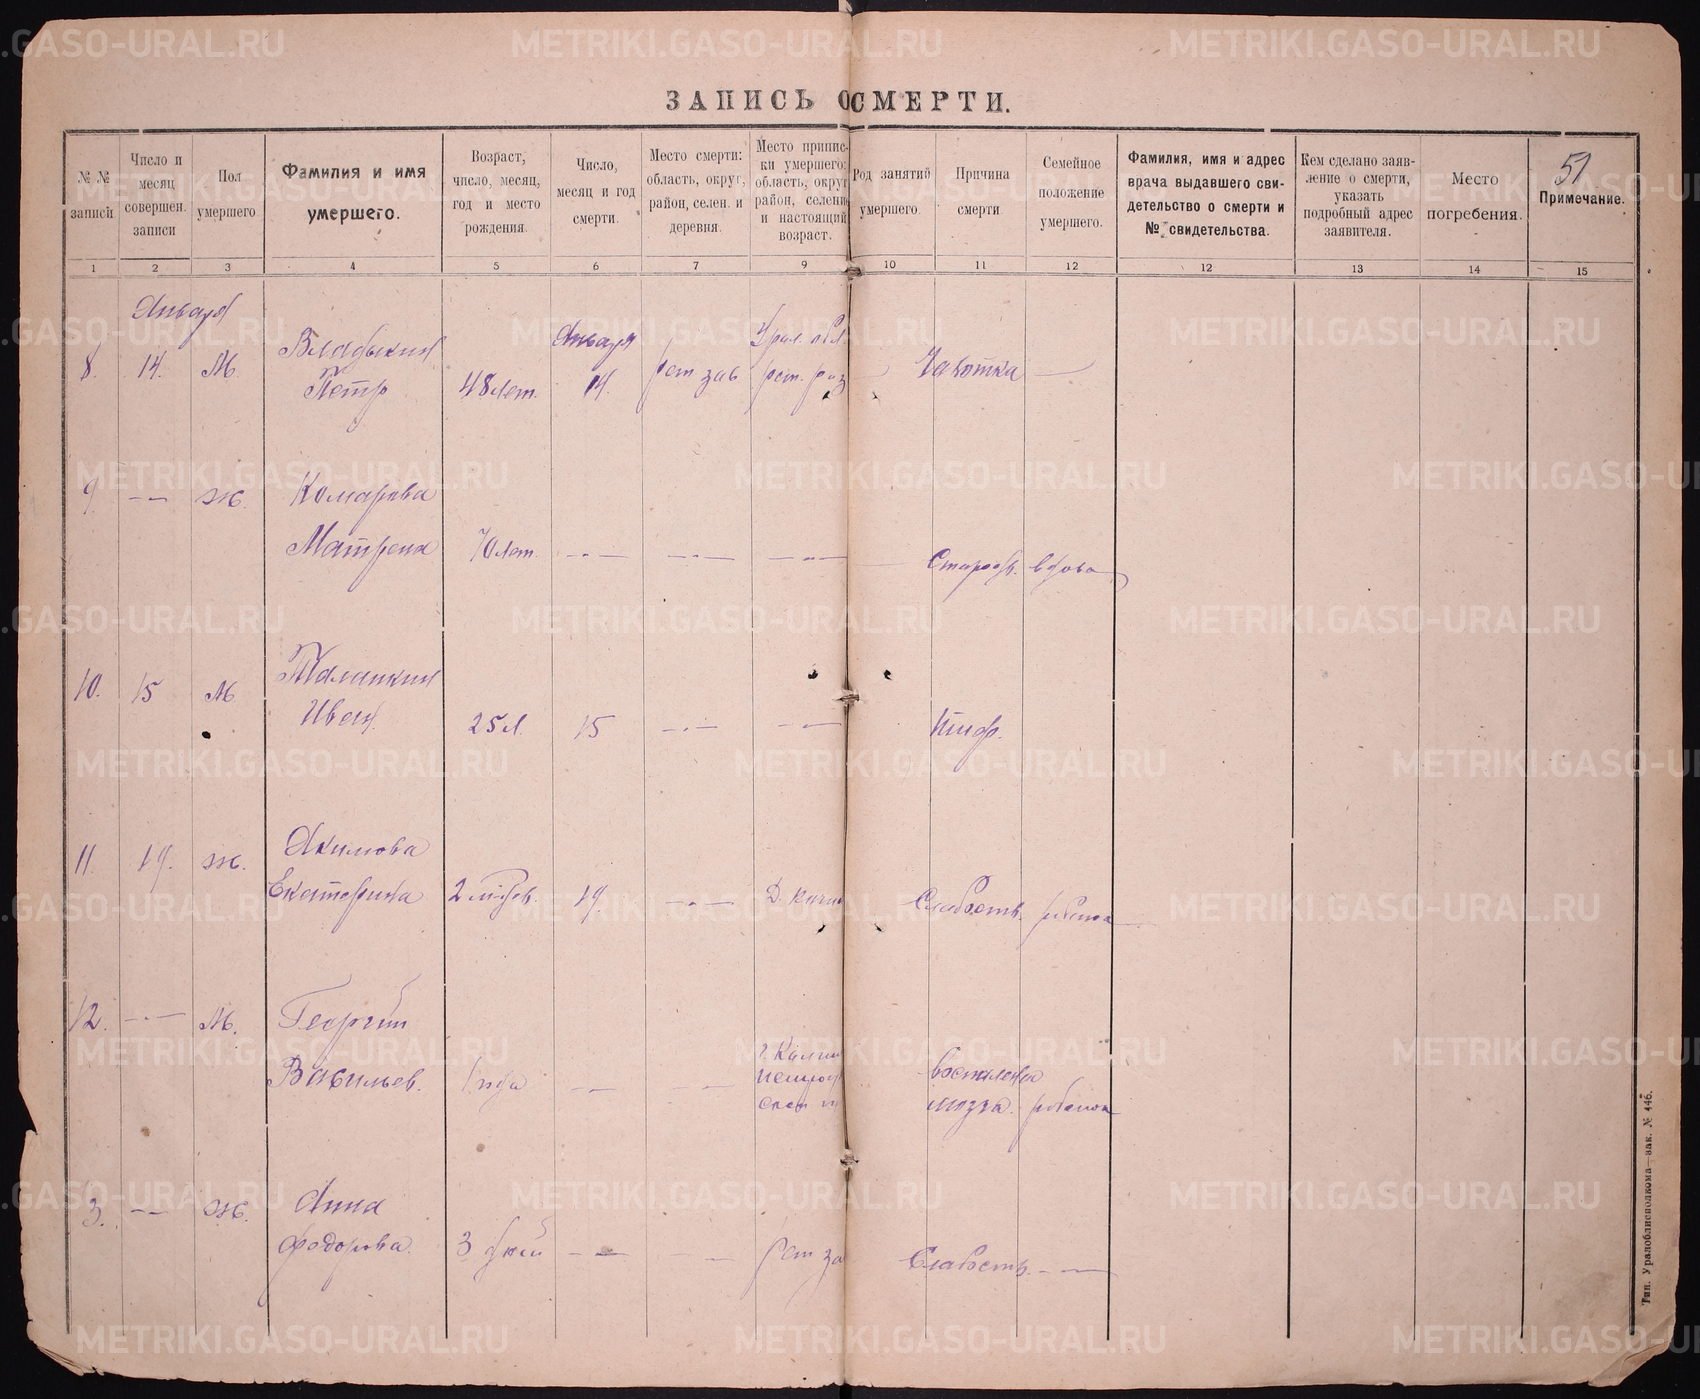 ЗАПИСЬ О СМЕРТИ.
51
№ № записи
Число и месяц совершен. записи
Пол умершего
Фамилия и имя умершего.
Возраст, число, месяц, год и место рождения.
Число, месяц и год смерти.
Место смерти: область, округ, район, селен. и деревня.
Место приписки умершего: область, округ район, селени и настоящий возраст.
Род занятий умершего.
Причина смерти.
Семейное положение умершего.
Фамилия, имя и адрес врача выдавшего свидетельство о смерти и № свидетельства.
Кем сделано заявление о смерти, указать подробный адрес заявителя.
Место погребения.
Примечание.
1 2 3 4 5 6 7 9 10 11 12 12 13 14 15
Января
Января
8. 14. М Петр 48 лет. 14. Чахотка —
9 — ж. Комарова
Матрена 70 лет. — — — вдова
10. 15 М
Иван 25 л. 15 — — Тиф.
11. 19. ж. Акимова
Екатерина 19. — Слабость
12. — М. Георгий
Васильев. 1 года — —
мозга
3. — ж. Анна
Федорова. 3 дней — — Слабость —
Тип. Уралоблисполкома—зак. № 446.
METRIKI.GASO-URAL.RU